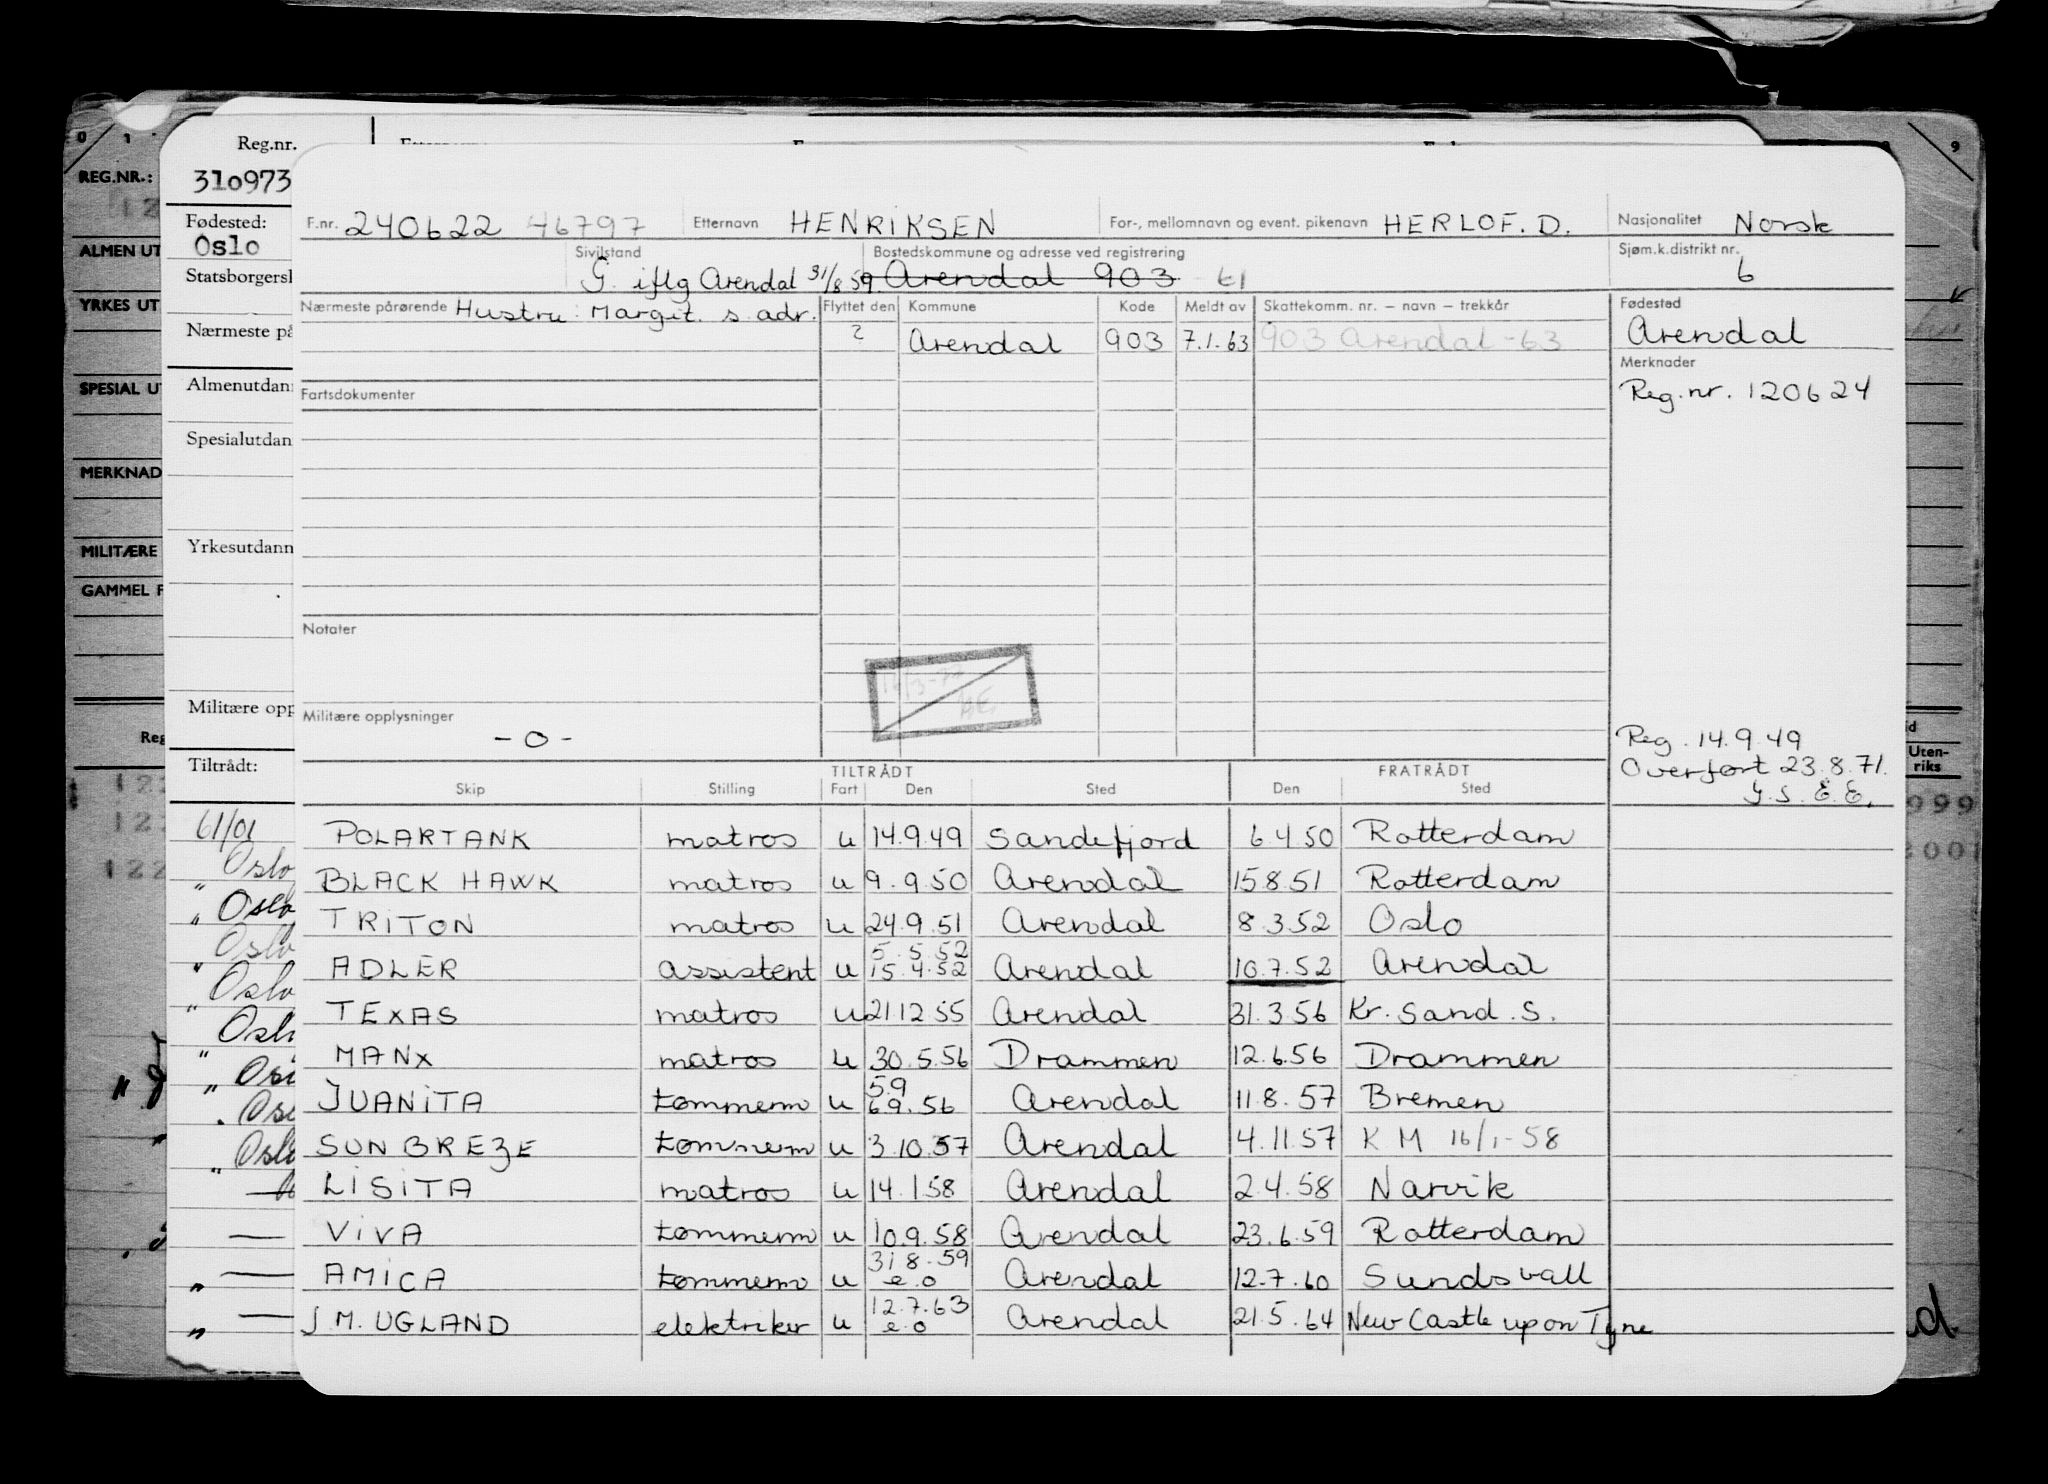 0 1 9
REG.NR.:
ALMEN UT
YRKES UT
SPESIAL U
MERKNAD
MILITÆRE
GAMMEL F
Reg
Uten-
riks
Reg.nr.
310973
Fødested:
Oslo
Statsborgersk
Nærmeste på
Almenutdan
Spesialutdan
Yrkesutdann
Militære opp
Tiltrådt:
61/01
Oslo
" Oslo
Oslo
" Oslo
F.nr. 240622 46797 Etternavn HENRIKSEN For-, mellomnavn og event. pikenavn HERLOF. D. Nasjonalitet Norsk
Sivilstand Bostedskommune og adresse ved registrering Sjøm.k.distrikt nr.
G. iflg Arendal 31/8 59. Arendal 903 61 6
Nærmeste pårørende Hustru: Margit. s. adr. Flyttet den Kommune Kode Meldt av Skattekomm. nr. — navn — trekkår Fødested
? Arendal 903 7.1.63 903 Arendal -63 Arendal
Merknader
Fartsdokumenter Reg.nr. 120624
Notater
Militære opplysninger
- 0 -
Reg. 14.9.49
Overført 23.8.71.
TILTRÅDT FRATRÅDT
Skip Stilling Fart Den Sted Den Sted
POLARTANK matros u 14.9.49 Sandefjord 6.4.50 Rotterdam
BLACK HAWK matros u 9.9.50 Arendal 15.8.51 Rotterdam
TRITON matros u 24.9.51 Arendal 8.3.52 Oslo
5.5.52
ADLER assistent u 15.4.52 Arendal 10.7.52 Arendal
TEXAS matros u 21.12.55 Arendal 31.3.56 Kr. Sand. S.
MANX matros u 30.5.56 Drammen 12.6.56 Drammen
5.9
JUANITA tømmerm u 6.9.56 Arendal 11.8.57 Bremen
SUN BREZE tømmerm u 3.10.57 Arendal 4.11.57 K M 16/1-58
LISITA matros u 14.1.58 Arendal 2.4.58 Narvik
VIVA tømmerm u 10.9.58 Arendal 23.6.59 Rotterdam
31.8.59
AMICA tømmerm u e.o Arendal 12.7.60 Sundsvall
12.7.63
J.M. UGLAND elektriker u e.o Arendal 21.5.64 New Castle upon Tyne